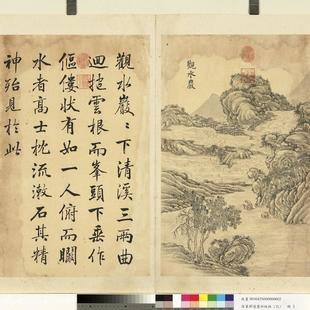 觀水巖
觀水巖〻下清溪三兩曲
迴抱雲根而峯頭下垂作
傴僂狀有如一人俯而瞰
水者高士枕流漱石其精
神殆見於此